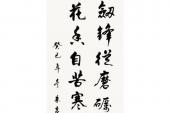 劔鋒從磨礪
花香自苦寒
癸巳年冬